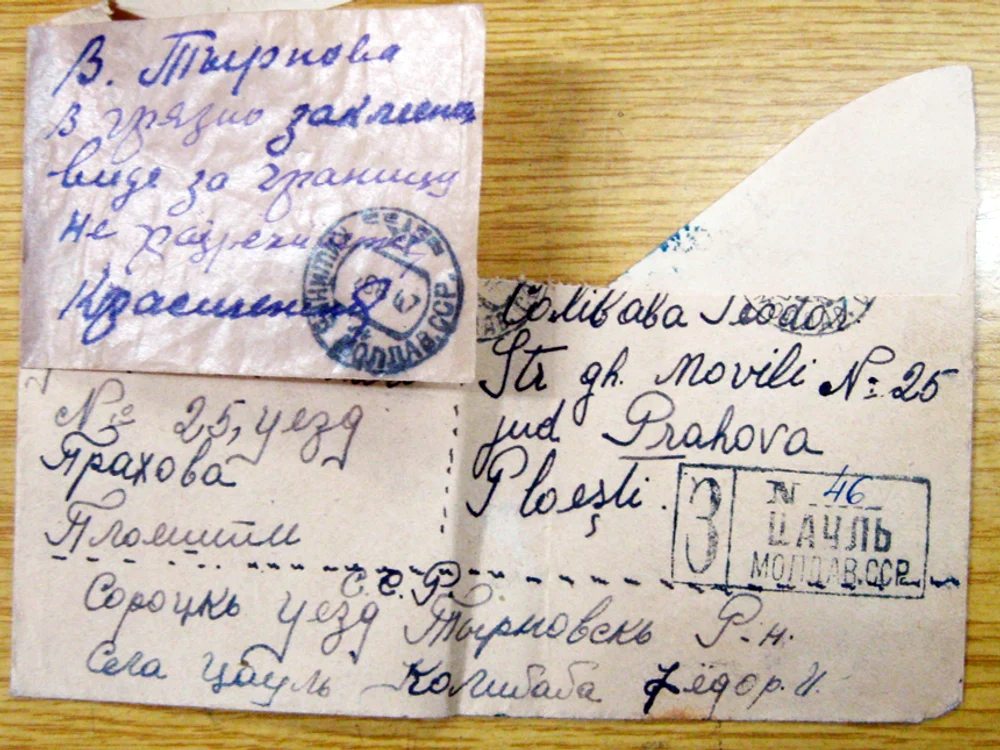 В. Тырнова
в грязно заклеен
виде за границу
не разрешается
КИШИНЕВ
МОЛДАВ.ССР
Colibaba Teodor
Str gh. Movili № 25
jud Prahova
Ploești.
№ 25, уезд
Прахова
Плоишти
З № 46
ЦАУЛЬ
МОЛДАВ.ССР
С.С.Р.
Сороцкь уезд Тырновскь Р-н.
Села Цауль Колибаба Фёдор. И.